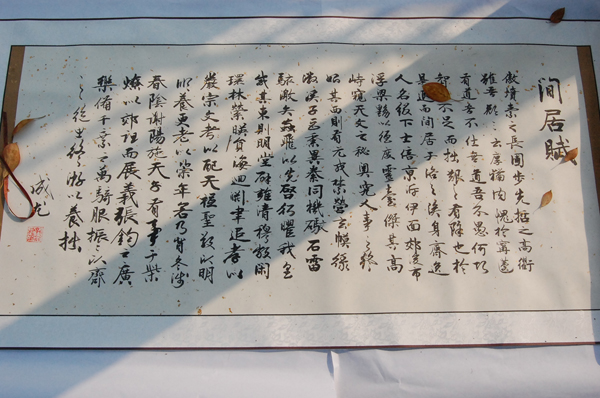 閒居賦
傲墳素之長圃步先哲之高衢
雖吾顏云厚猶內愧於寧蘧
有道吾不仕無道吾不愚何巧
智之不足而拙艱之有餘也於
是退而閒居于洛之涘身齊逸
人名綴下士倍京泝伊面郊後市
浮梁黝以徑度靈臺傑其高
峙窺天文之秘奧究人事之終
始其西則有元戎禁營玄幕綠
徽谿子巨黍異絭同機礮石雷
駭激矢虻飛以先啓行耀我皇
威其東則明堂辟雍清穆敞閑
環林縈映圓海迴淵聿追孝以
嚴宗文考以配天祗聖敬以明
順養更老以崇年若乃背冬涉
春陰謝陽施天子有事于柴
燎以郊祖而展義張鈞天之廣
樂備千乘之萬騎服振以齊
之終游以養拙